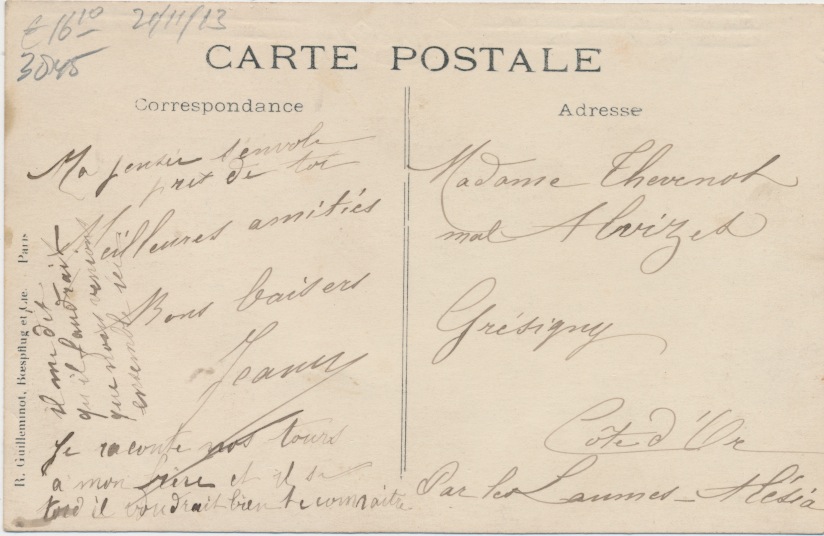 € 16 10 21/11/13
3845
CARTE POSTALE
Correspondance
Ma pensée s'envole
près de toi
Meilleures amitiés
Bons baisers
Jeany
Je raconte nos tours
a mon frère et il se
tord il voudrait bien te connaitre
il me dit
qu'il faudrait
que nous venions
ensemble ici
R. Guilleminot, Bœspflug et Cie. Paris
Adresse
Madame Thevenot
Alvizet
Grésigny
Côte d'Or
Par les Laumes - Alésia